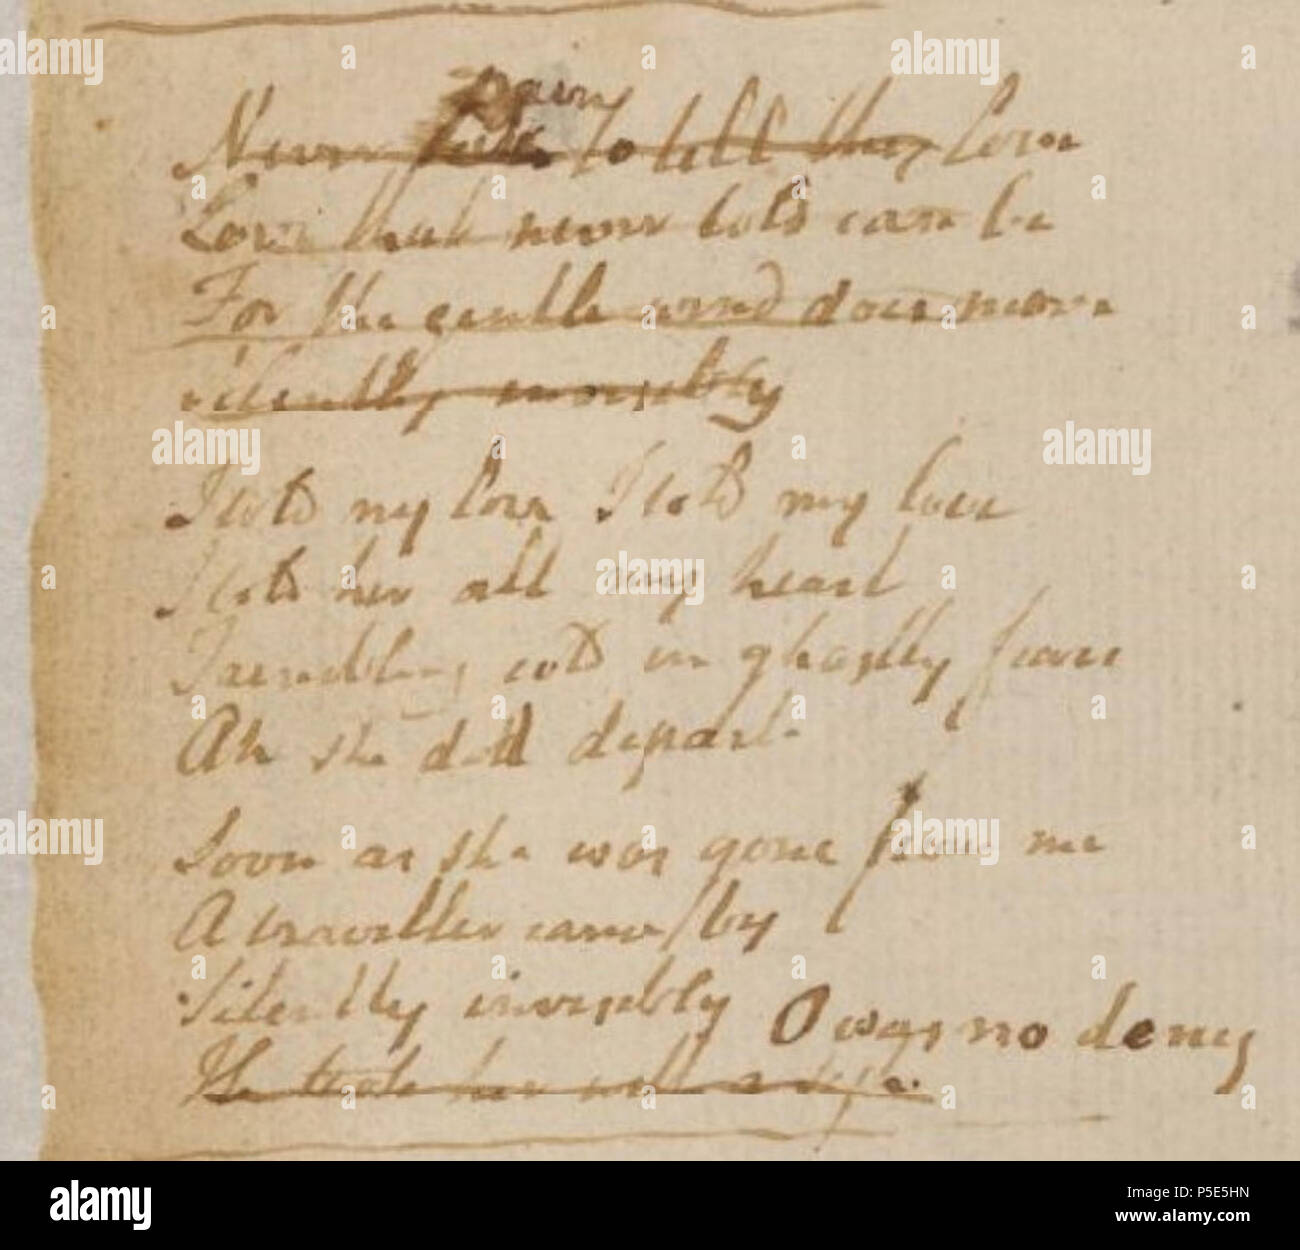 pain
Never seek to tell thy love
Love that never told can be
For the gentle wind does move
Silently invisibly
I told my love I told my love
I told her all my heart
Trembling cold in ghastly fears
Ah she doth depart
Soon as she was gone from me
A traveller came by
Silently invisibly
O was no deny
He took her with a sigh.
alamy
Image ID: P5E5HN
www.alamy.com